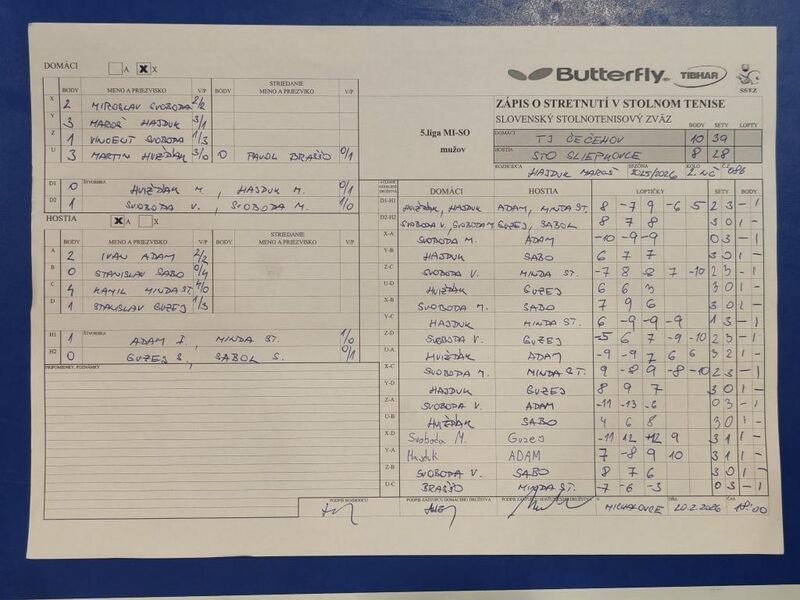 DOMÁCI A X X
BODY MENO A PRIEZVISKO V/P BODY STRIEDANIE MENO A PRIEZVISKO V/P
X 2 MIROSLAV SVOBODA 2/2
Y 3 MAROŠ HAJDUK 3/1
Z 1 VINCENT SVOBODA 1/3
U 3 MARTIN HVIŽĎÁK 3/0 0 PAVOL BRAŠŠO 0/1
D1 0 ŠTVORHRA HVIŽĎÁK M., HAJDUK M. 0/1
D2 1 SVOBODA V., SVOBODA M. 1/0
HOSTIA X A X
BODY MENO A PRIEZVISKO V/P BODY STRIEDANIE MENO A PRIEZVISKO V/P
A 2 IVAN ADAM 2/2
B 0 STANISLAV SABO 0/4
C 4 KAMIL MINDA ST. 4/0
D 1 STANISLAV GUZEJ 1/3
H1 1 ŠTVORHRA ADAM I., MINDA ST. 1/0
H2 0 GUZEJ S., SABOL S. 0/1
PRIPOMIENKY, POZNÁMKY
Butterfly TIBHAR SSTZ
5.liga MI-SO mužov
ZÁPIS O STRETNUTÍ V STOLNOM TENISE
SLOVENSKÝ STOLNOTENISOVÝ ZVÄZ BODY SETY LOPTY
DOMÁCI TJ ČEČEHOV 10 39
HOSTIA STO SLIEPKOVCE 8 28
ROZHODCA HAJDUK MAROŠ SEZÓNA 2025/2026 KOLO Č. 086
DOMÁCI HOSTIA LOPTIČKY SETY BODY
D1-H1 HVIŽĎÁK, HAJDUK ADAM, MINDA ST. 8 -7 9 -6 5 2 3 - 1
D2-H2 SVOBODA V., SVOBODA M. GUZEJ, SABOL 8 7 8 3 0 1 -
X-A SVOBODA M. ADAM -10 -9 -9 0 3 - 1
Y-B HAJDUK SABO 6 7 7 3 0 1 -
Z-C SVOBODA V. MINDA ST. -7 8 8 7 -10 2 3 - 1
U-D HVIŽĎÁK GUZEJ 6 6 3 3 0 1 -
X-B SVOBODA M. SABO 7 9 6 3 0 1 -
Y-C HAJDUK MINDA ST. 6 -9 -9 -9 1 3 - 1
Z-D SVOBODA V. GUZEJ -5 6 7 -9 -10 2 3 - 1
U-A HVIŽĎÁK ADAM -9 -9 7 6 6 3 2 1 -
X-C SVOBODA M. MINDA ST. 9 -8 9 -8 -10 2 3 - 1
Y-D HAJDUK GUZEJ 8 9 7 3 0 1 -
Z-A SVOBODA V. ADAM -11 -13 -6 0 3 - 1
U-B HVIŽĎÁK SABO 4 6 8 3 0 1 -
X-D Svoboda M. Guzej -11 12 12 9 3 1 1 -
Y-A Hajduk ADAM 7 -8 9 10 3 1 1 -
Z-B SVOBODA V. SABO 8 7 6 3 0 1 -
U-C BRAŠŠO MINDA ST. -7 -6 -3 0 3 - 1
PODPIS ROZHODCU PODPIS ZÁSTUPCU DOMÁCEHO DRUŽSTVA PODPIS ZÁSTUPCU HOSŤUJÚCEHO DRUŽSTVA V MICHALOVCE DŇA 20.2.2026 ČAS